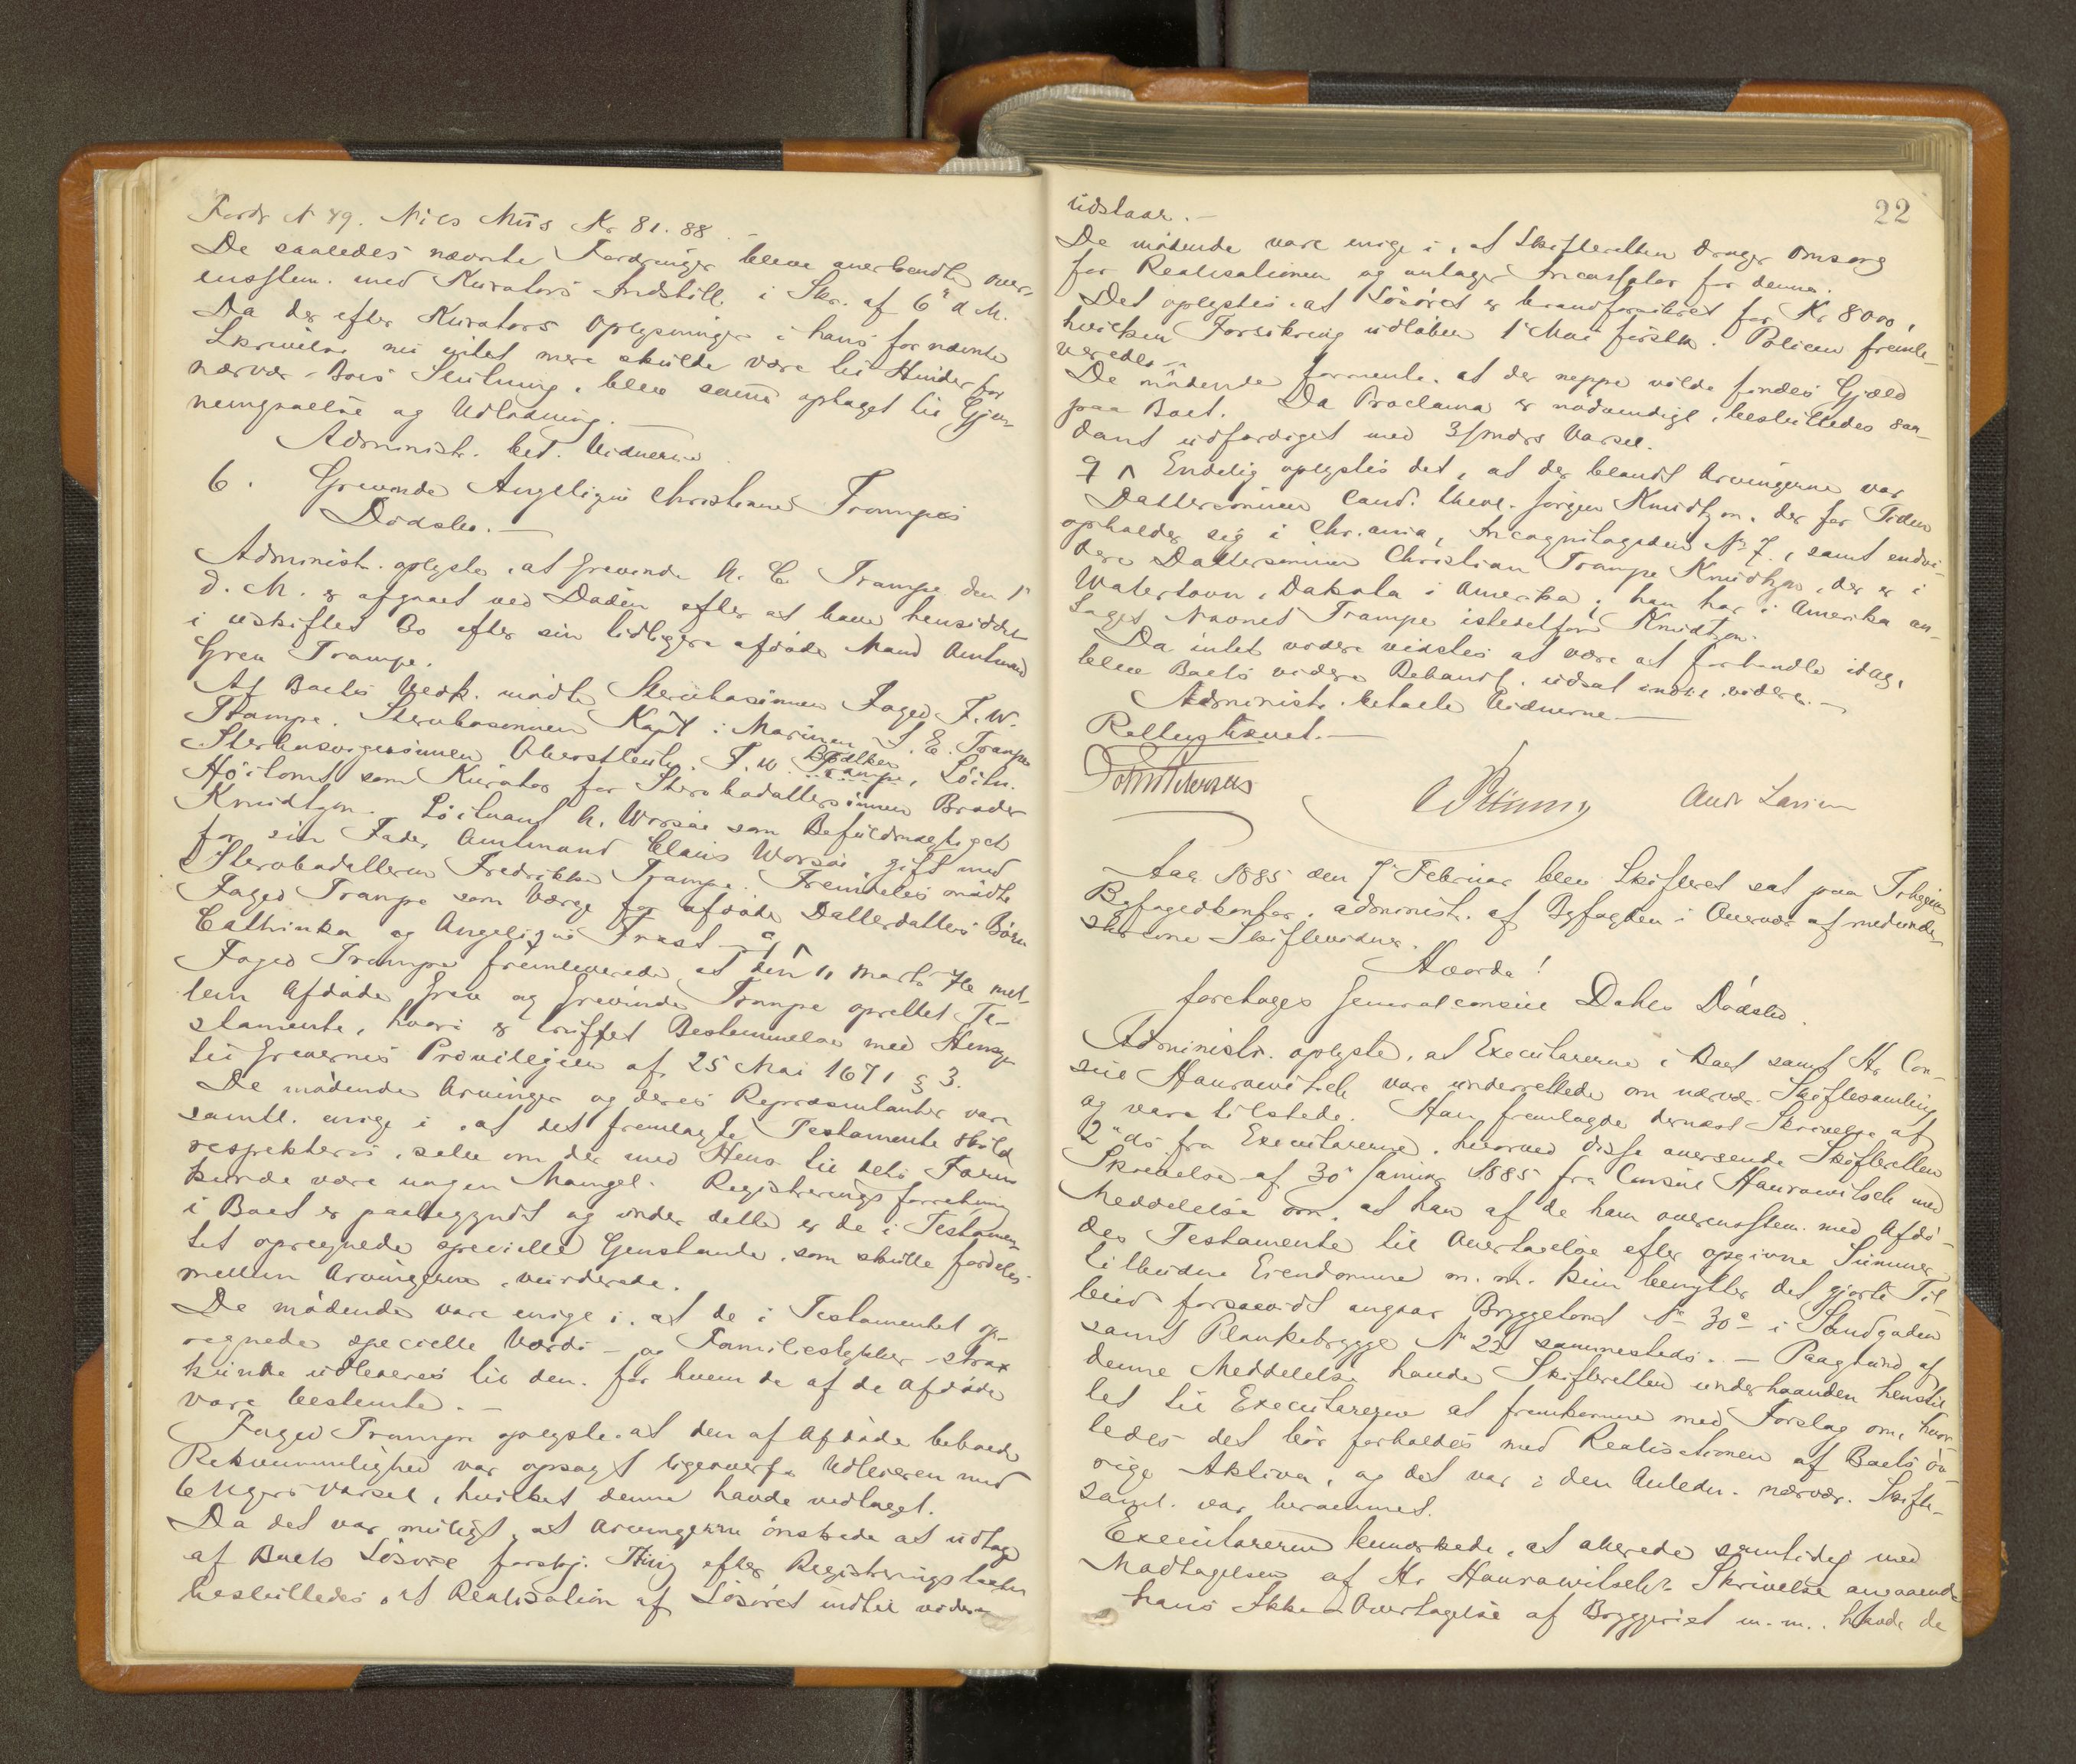 Fordr N 49. Nils Miis Kr 81.88. -
De saaledes nævnte Fordringer bleve anerkendt over-
ensstem. med Kurators Indstill. i Skr. af 6te d. M.
Da der efter Kurators Oplysninger i hans fornævnte
Skrivelse nu intet mere skulde være til Hinder for
nærvær. Boes Slutning, blev samme optaget til Gjen-
nemgaaelse og Udlodning.
Administr. bet. Vidnerne
6. Grevinde Angelique Christiane Trampes
Dødsbo. -
Administr. oplyste, at Grevinde A. C. Trampe den 1ste
d. M. er afgaaet ved Døden efter at have hensiddet
i uskiftet Bo efter sin tidligere afdøde Mand Amtmand
Grev Trampe.
Af Boets Vedk. mødte Stervbosønnen Foged F. W.
Trampe. Stervbosønnen Kapt. i Marinen S. E. Trampe
Stervbosvigersønnen Oberstleutn. F. W. Trampe, Bødtker Löitn.
Höilomt som Kurator for Stervbodattersønnen Broder
Knudtzon. Löitnant A. Worsøe som Befuldmægtiget
for sin Fader Amtmand Claus Worsøe gift med
Stervbodatteren Fredrikke Trampe. Fremdeles mødte
Foged Trampe som Værge for afdøde Datterdatters Børn
Cathinka og Angelique Frost -
Foged Trampe fremleverede et den 11 Marts 76 mel-
lem Afdøde Grev og Grevinde Trampe oprettet Te-
stamente, hvori er truffet Bestemmelse med Hensyn
til Grevernes Privilegier af 25 Mai 1671 § 3.
De mødende Arvinger og deres Repræsentanter var
samtl. enige i, at det fremlagte Testamente skuld
respekteres, selv om der med Hens. til dets Form
kunde være nogen Mangel. Registreringsforretning
i Boet er paabegyndt og under dette er de i Testamen-
tet opregnede specielle Genstande, som skulle fordeles
mellem Arvingerne, vurderede.
De mødende vare enige i, at de i Testamentet op-
regnede specielle Værdi- og Familiestykker strax
kunde udleveres til den, for hvem de af de Afdøde
vare bestemte. -
Foged Trampe oplyste, at den af Afdøde beboede
Bekvemmelighed var opsagt ligeoverfor Udleieren med
6 Ugers Varsel, hvilket denne havde vedtaget.
Da det var muligt, at Arvingerne ønskede at udtage
af Boets Løsøre forskj. Ting efter Registreringstaxten
besluttedes, at Realisation af Løsøret indtil videre
22
udstaar. -
De mødende vare enige i, at Skifteretten drager Omsorg
for Realisationen og antager Incassator for denne.
Det oplystes, at Løsøret er brandforsikret for Kr 8000,
hvilken Forsikring udløber 1 Mai førstk. Policen fremle-
veredes -
De mødende formente, at der neppe vilde findes Gjæld
paa Boet. Da Proclama er nødvendigt, besluttedes saa-
dant udfærdiget med 3/mdrs Varsel.
Endelig oplystes det, at der blandt Arvingerne var
Dattersønnen Cand. theol. Jörgen Knudtzon, der for Tiden
opholder sig i Chr.ania, Incognitogaden No 7, samt endvi-
dere Dattersønnen Christian Trampe Knudtzon, der er i
Watertown, Dakota i Amerika; han har i Amerika an-
taget Navnet Trampe istedetfor Knudtzon.
Da intet videre vidstes at være at forhandle idag,
blev Boets videre Behandl. udsat indtil videre. -
Administr. betalte Vidnerne -
Retten hævet. -
Andr Larsen
Aar 1885 den 7 Februar blev Skifteret sat paa Trhjems
Byfogedkontor, administr. af Byfogden i Overvær af medunder-
skrevne Skiftevidner.
Hvorda!
foretoges Generalconsul Dahls Dødsbo.
Administr. oplyste, at Executorerne i Boet samt Hr Con-
sul Hanrowitsch vare underrettede om nærvær. Skiftesamling
og vare tilstede. Han fremlagde dernæst Skrivelse af
2 ds fra Executorerne, hvorved disse oversende Skifteretten
Skrivelse af 30 Januar 1885 fra Consul Hanrowitsch med
Meddelelse om, at han af de ham overensstem. med Afdø-
des Testamente til Overtagelse efter opgivne Summer
tilbudne Eiendomme m. m. kun benytter det gjorte Til-
bud forsaavidt angaar Bryggetomt No 30a i Sandgaden
samt Plankebrygge No 22 sammesteds. - Paagrund af
denne Meddelelse havde Skifteretten underhaanden henstil-
let til Executorerne at fremkomme med Forslag om, hvor-
ledes det bør forholdes med Realisationen af Boets öv-
rige Aktiva, og det var i den Anledn. nærvær. Skifte-
saml. var berammet.
Executorerne bemærkede, at allerede samtidig med
Modtagelsen af Hr Hanrowitsch's Skrivelse angaaende
hans Ikke-Overtagelse af Bryggeriet m. m. havde de